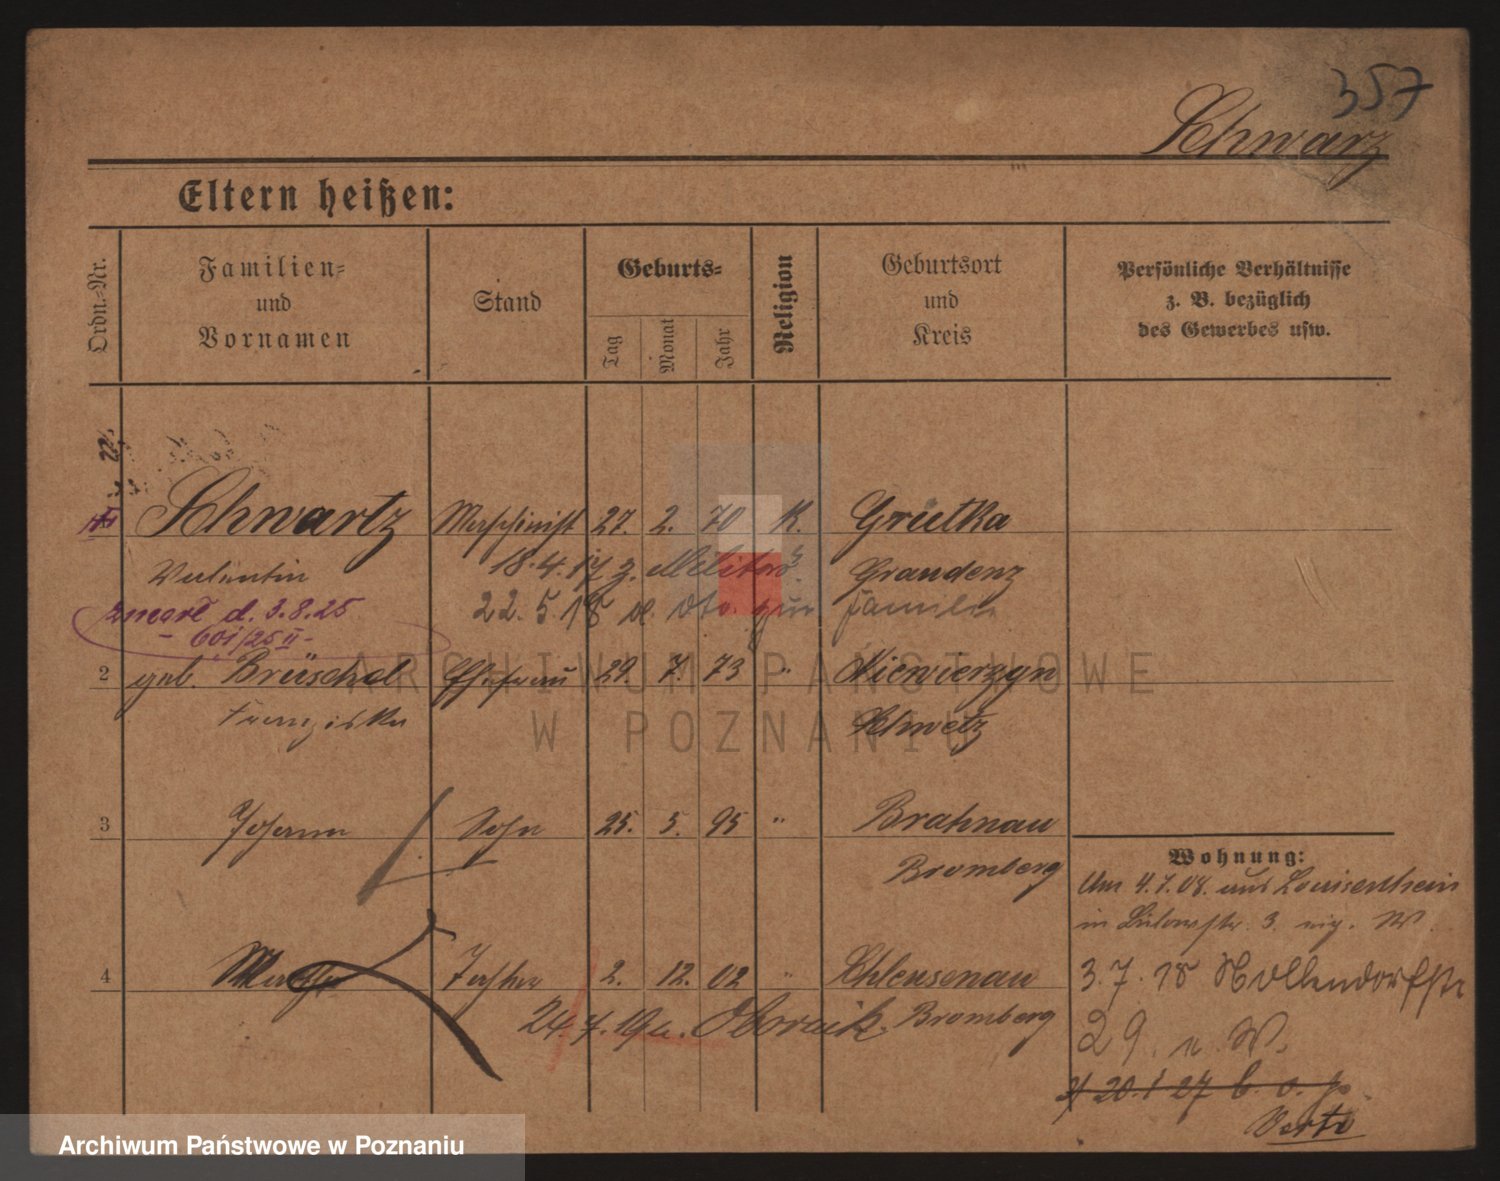 357
Schwarz
Eltern heißen:
Ordn.-Nr.
Familien-
und
Vornamen
Stand
Geburts-
Tag
Monat
Jahr
Religion
Geburtsort
und
Kreis
Persönliche Verhältnisse
z. B. bezüglich
des Gewerbes usw.
Schwartz Maschinist 27. 2. 70 K. Grutka
Valentin 18.4.17 z. Militär Graudenz
zmarł d. 3.8.25 22.5.18 zur Familie
601/25 II
2 geb. Brüschel Ehefrau 29. 7. 73 " Niewierzyn
Franziska Schwetz
3 Johann Sohn 25. 5. 95 " Brahnau
Bromberg
Wohnung:
Am 4.7.08. aus Louisenhain
in Bülowstr. 3.
4 Tochter 2. 12. 02 " Schleusenau
3.7.18 Nollendorfstr
24.7.19 Obornik. Bromberg
29. n. W.
20.1 27
Verte
ARCHIWUM PAŃSTWOWE
W POZNANIU
Archiwum Państwowe w Poznaniu